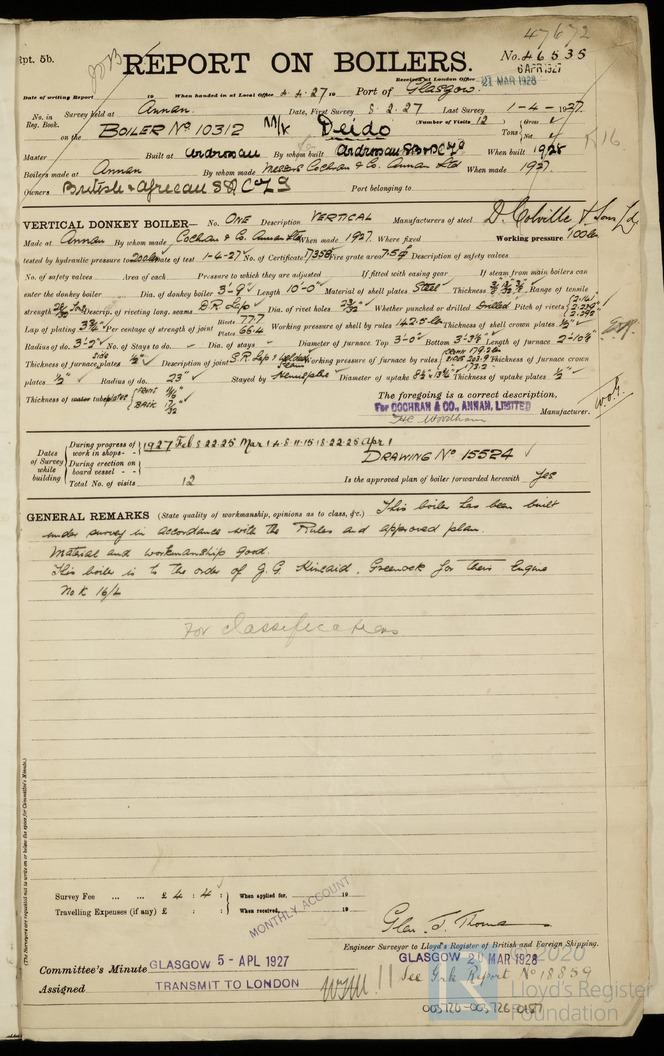 47672
Rpt. 5b.
REPORT ON BOILERS.
No. 46535
6 APR 1927
Received at London Office 21 MAR 1928
Date of writing Report 19 When handed in at Local Office 4.4.27 19 Port of Glasgow.
No. in Reg. Book. Survey held at Annan. Date, First Survey 8.2.27 Last Survey 1-4-1927.
(Number of Visits 12)
on the BOILER No 10312 M/V Deido
Tons Gross Net
Master Built at Ardrossan By whom built Ardrossan When built 1928
Boilers made at Annan By whom made Messrs Cochran & Co. Annan Ltd When made 1927.
Owners British & African S N Co Port belonging to
VERTICAL DONKEY BOILER— No. ONE Description VERTICAL Manufacturers of steel D. Colville & Sons Ld
Made at Annan By whom made Cochran & Co. Annan Ltd When made 1927. Where fixed Working pressure 100 lbs
tested by hydraulic pressure to 200 lbs Date of test 1-4-27 No. of Certificate 17358 Fire grate area Description of safety valves
No. of safety valves Area of each Pressure to which they are adjusted If fitted with easing gear If steam from main boilers can
enter the donkey boiler Dia. of donkey boiler 3'-9" Length 10'-0" Material of shell plates Steel Thickness Range of tensile
strength Descrip. of riveting long. seams D R Lap Dia. of rivet holes Whether punched or drilled Drilled Pitch of rivets
Lap of plating Per centage of strength of joint Rivets 77.7 Plates 66.4 Working pressure of shell by rules 142.5 lbs Thickness of shell crown plates
Radius of do. 3'-2" No. of Stays to do. Dia. of stays Diameter of furnace. Top 3'-0" Bottom 3'-3¾" Length of furnace 2'-10¾"
Thickness of furnace plates side ½" Description of joint S.R. Lap & welded seam Working pressure of furnace by rules Thickness of furnace crown
plates ½" Radius of do. 23" Stayed by Hemisphere Diameter of uptake Thickness of uptake plates ½"
Thickness of water tube plates FRONT 11/16 BACK 17/32
The foregoing is a correct description,
For COCHRAN & CO., ANNAN, LIMITED
Manufacturer.
Dates of Survey while building
During progress of work in shops - - 1927 Feb 8 22.25 Mar 1.4.8.11.15.18.22.25 Apr 1
During erection on board vessel - -
DRAWING No 15524
Total No. of visits 12
Is the approved plan of boiler forwarded herewith Yes
GENERAL REMARKS (State quality of workmanship, opinions as to class, &c.) This boiler has been built
under survey in accordance with the Rules and approved plan.
Material and workmanship good.
This boiler is to the order of J. G. Kincaid, Greenock for their Engine
No K 16/4
For classification
(The Surveyors are requested not to write on or below the space for Committee's Minute.)
Survey Fee ... ... £ 4 : 4 : When applied for, 19
Travelling Expenses (if any) £ : : When received, 19
MONTHLY ACCOUNT
Engineer Surveyor to Lloyd's Register of British and Foreign Shipping.
Committee's Minute GLASGOW 5 - APL 1927 GLASGOW 20 MAR 1928
Assigned TRANSMIT TO LONDON See Grk Report No 18859
© 2020
Lloyd's Register
Foundation
003720-003726-0187